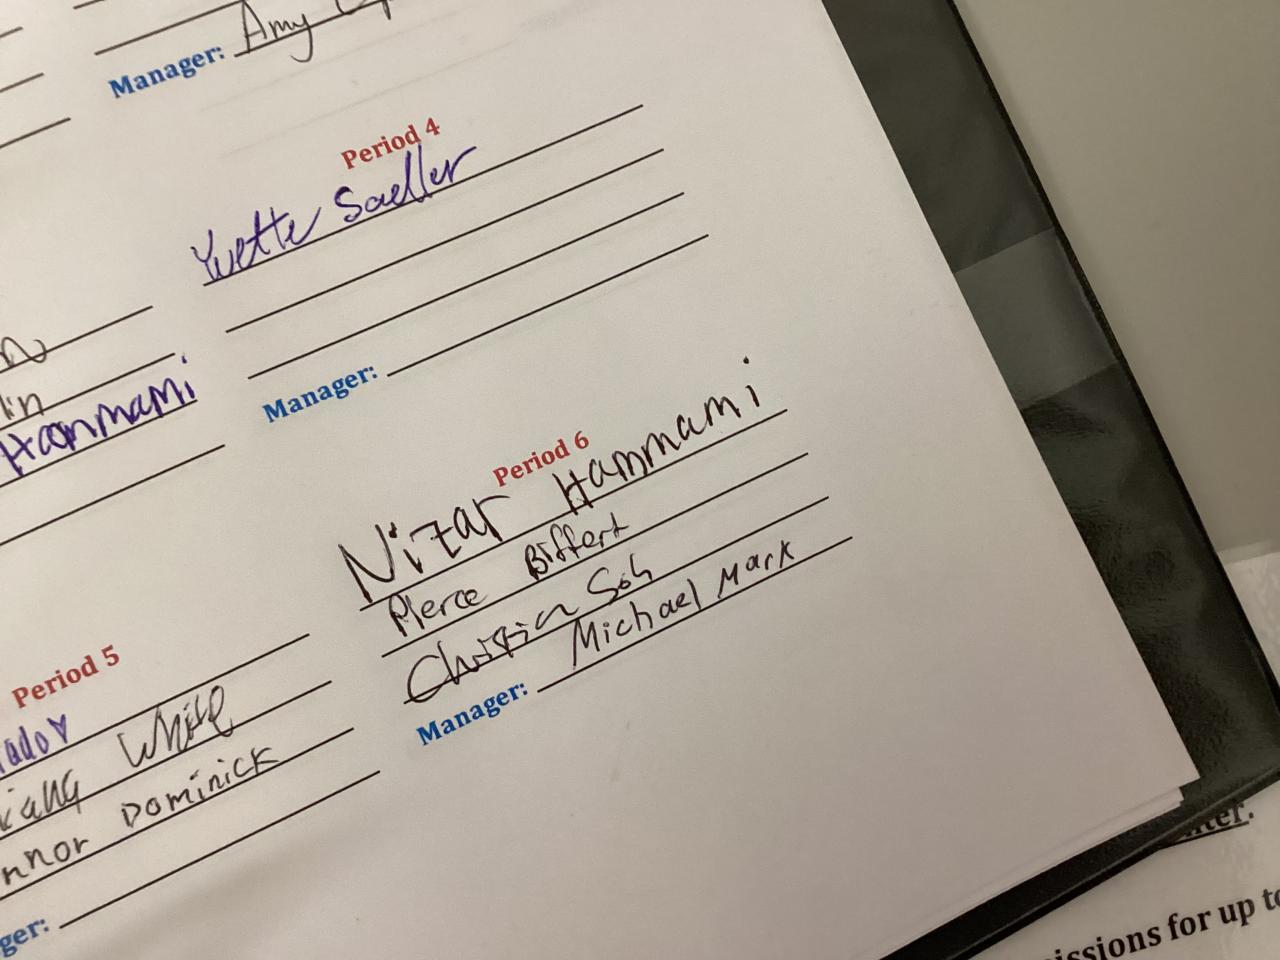 Manager: Amy
Period 4
Yvette Saeller
Manager:
lin
Hammami
Period 6
Nizar Hammami
Pierce Biffert
Christian Soh
Manager: Michael Mark
Period 5
White
Dominick
issions for up to